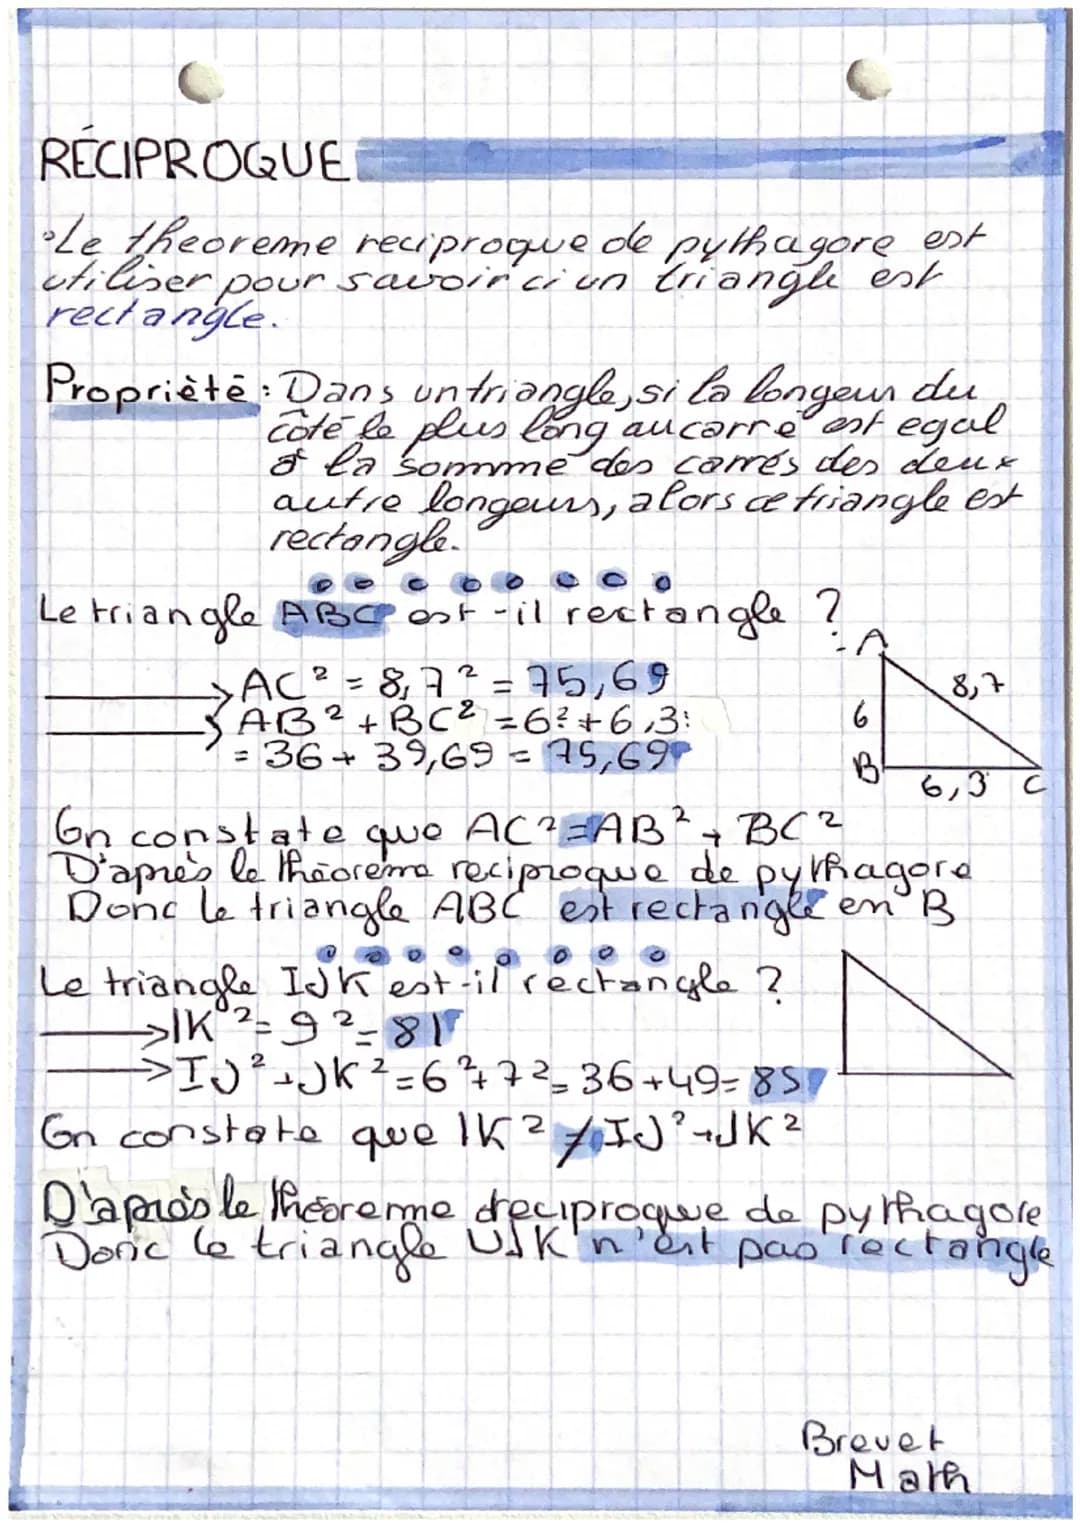 RÉCIPROQUE
•Le theoreme reciproque de pythagore est
utiliser pour savoir ci un triangle est
rectangle.
Propriètè : Dans un triangle, si la longeur du
côté le plus long au carré est egal
à la somme des carrés des deux
autre longeurs, alors ce triangle est
rectangle.
Le triangle ABC est-il rectangle ?
AC² = 8,7² = 75,69
AB² + BC² = 6² + 6,3²
= 36 + 39,69 = 75,69
A
8,7
6
B
6,3 C
On constate que AC² = AB² + BC²
D'après le théoreme reciproque de pythagore
Donc le triangle ABC est rectangle en B
Le triangle IJK est-il rectangle ?
IK² = 9² = 81
IJ² + JK² = 6² + 7² = 36 + 49 = 85
On constate que IK² ≠ IJ² + JK²
D'après le théoreme reciproque de pythagore
Donc le triangle IJK n'est pas rectangle
Brevet
Math